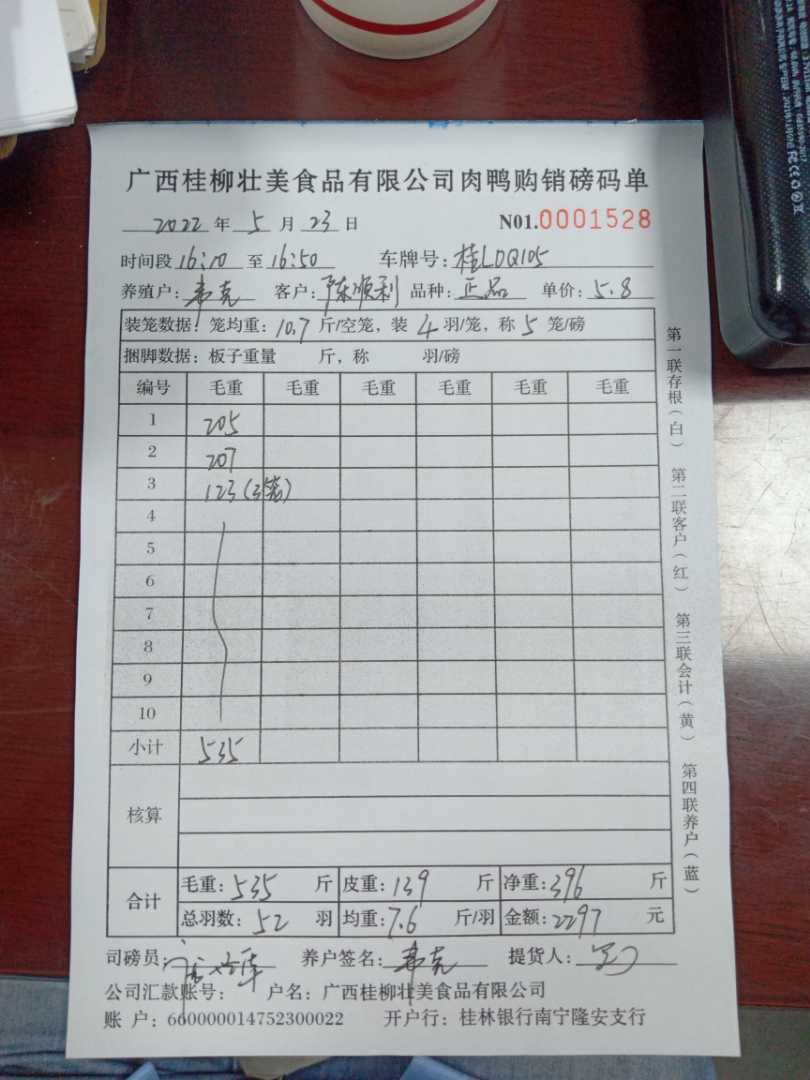 广西桂柳壮美食品有限公司肉鸭购销磅码单
2022 年 5 月 23 日 N01.0001528
时间段 16:10 至 16:50 车牌号: 桂LDQ105
养殖户: 韦克 客户: 陈顺利 品种: 正品 单价: 5.8
装笼数据: 笼均重: 10.7 斤/空笼, 装 4 羽/笼, 称 5 笼/磅
捆脚数据: 板子重量 斤, 称 羽/磅
编号 毛重 毛重 毛重 毛重 毛重 毛重
1 205
2 207
3 123(3笼)
4
5
6
7
8
9
10
小计 535
核算
合计 毛重: 535 斤 皮重: 139 斤 净重: 396 斤
总羽数: 52 羽 均重: 7.6 斤/羽 金额: 2297 元
司磅员: 养户签名: 韦克 提货人:
公司汇款账号: 户名: 广西桂柳壮美食品有限公司
账 户: 660000014752300022 开户行: 桂林银行南宁隆安支行
第一联存根(白) 第二联客户(红) 第三联会计(黄) 第四联养户(蓝)